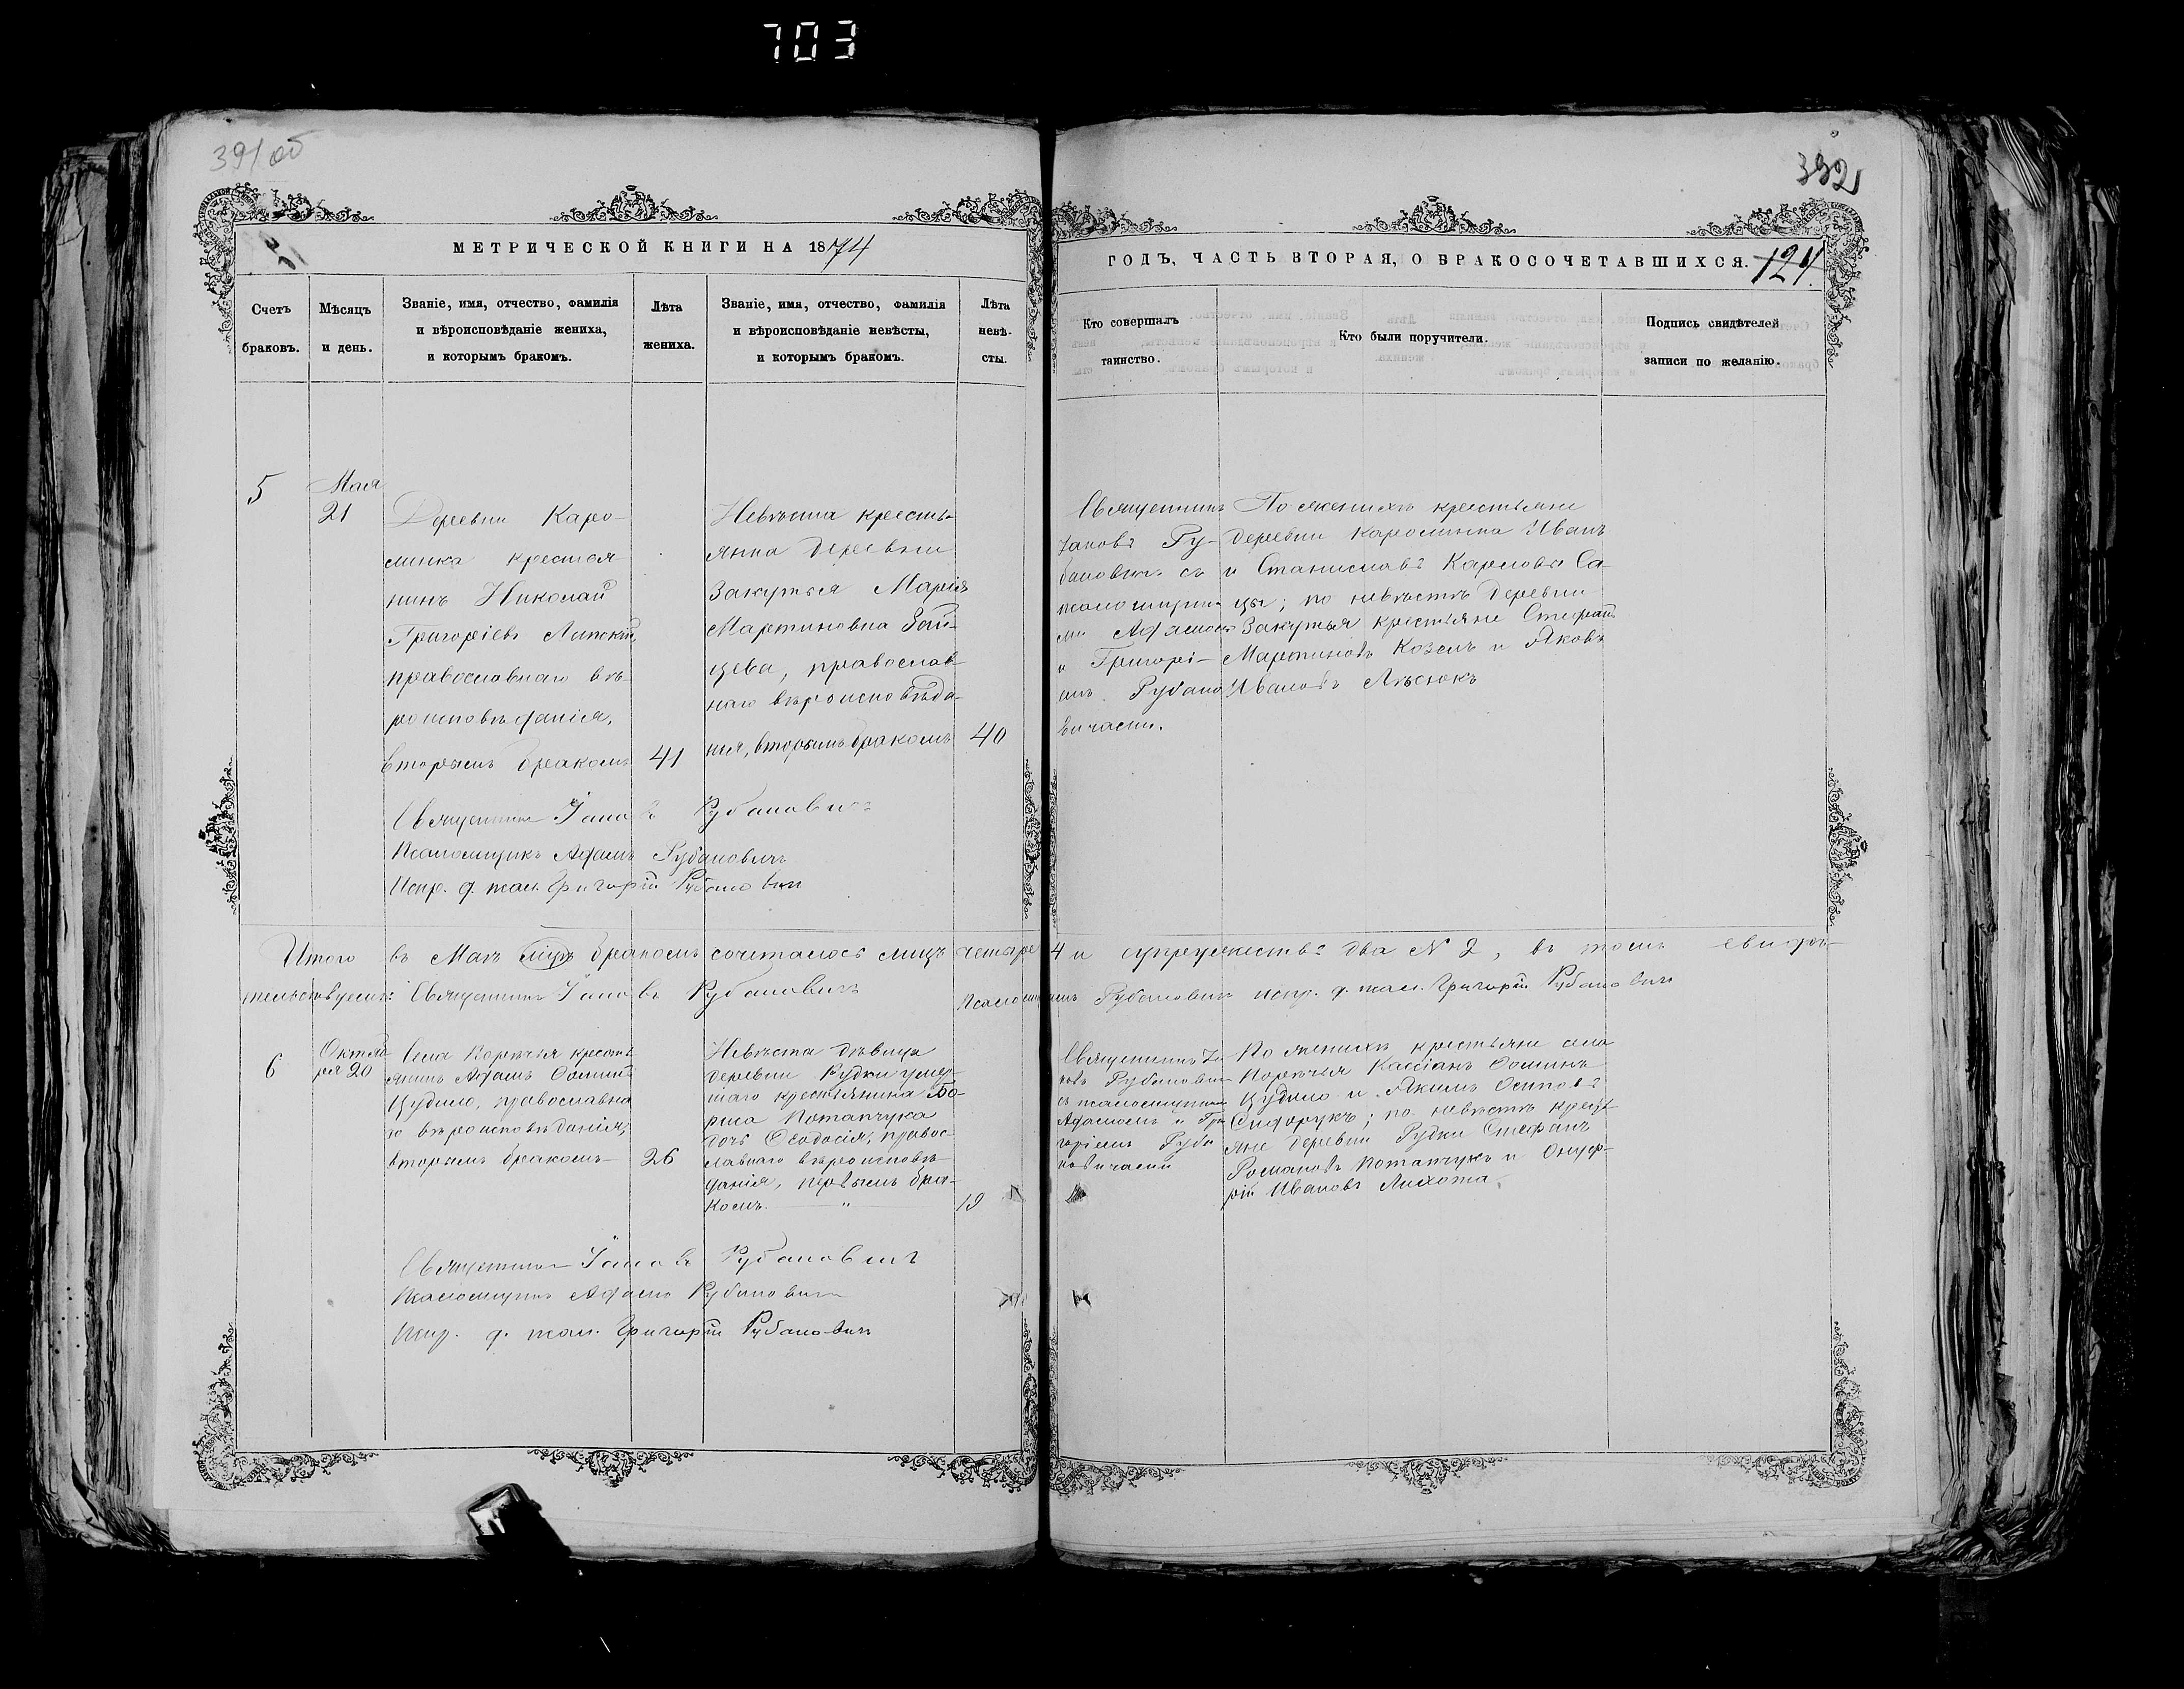 703
391 об
392
МЕТРИЧЕСКОЙ КНИГИ НА 1874
ГОДЪ, ЧАСТЬ ВТОРАЯ, О БРАКОСОЧЕТАВШИХСЯ.
124.
Счетъ
браковъ.
Мѣсяцъ
и день.
Званіе, имя, отчество, фамилія
и вѣроисповѣданіе жениха,
и которымъ бракомъ.
Лѣта
жениха.
Званіе, имя, отчество, фамилія
и вѣроисповѣданіе невѣсты,
и которымъ бракомъ.
Лѣта
невѣ-
сты.
Кто совершалъ
таинство.
Кто были поручители.
Подпись свидѣтелей
записи по желанію.
5
Мая
21
Деревни Каро-
линка крестья
нинъ Николай
Григоріевъ Липскій
православнаго вѣ-
роисповѣданія,
вторымъ бракомъ
41
Невѣста кресть-
янка деревни
Закутья Марія
Мартиновна Зай-
цева, православ-
наго вѣроисповѣда-
нія, вторымъ бракомъ
40
Священникъ
Іаковъ Ру-
бановичъ съ
псаломщика-
ми Адамомъ
и Григорі-
емъ Рубано
вичами.
По женихѣ крестьяне
деревни Каролинка Иванъ
и Станиславъ Карловы Са-
цы; по невѣстѣ деревни
Закутья крестьяне Стефанъ
Мартиновъ Козелъ и Яковъ
Ивановъ Лѣсюкъ
Священникъ Іаковъ Рубановичъ
Псаломщикъ Адамъ Рубановичъ
Испр. д. псал. Григорій Рубановичъ
Итого въ Маѣ мцѣ бракомъ сочеталось лицъ четыре 4 и супружествъ два № 2, въ томъ свидѣ-
тельствуемъ: Священникъ Іаковъ Рубановичъ Рубановичъ испр. д. псал. Григорій Рубановичъ
6
Октяб
ря 20
Села Порѣчья кресть
янинъ Адамъ Ѳоминъ
Цудило, православна
го вѣроисповѣданія,
вторымъ бракомъ
26
Невѣста дѣвица
деревни Рудки умер-
шаго крестьянина Бо-
риса Потапчука
дочь Ѳеодосія, правос-
лавнаго вѣроисповѣ-
данія, первымъ бра-
комъ "
19
Священникъ Іа
ковъ Рубановичъ
съ псаломщиками
Адамомъ и Гри
горіемъ Руба
новичами
По женихѣ крестьяне села
Порѣчья Кассіанъ Ѳоминъ
Цудило и Якимъ Осиповъ
Сидорукъ; по невѣстѣ кресть
яне деревни Рудки Стефанъ
Романовъ Потапчукъ и Онуф-
рій Ивановъ Лихота.
Священникъ Іаковъ Рубановичъ
Псаломщикъ Адамъ Рубановичъ
Испр. д. псал. Григорій Рубановичъ